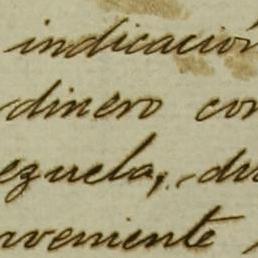 indicación
dinero con
ezuela, du
nveniente